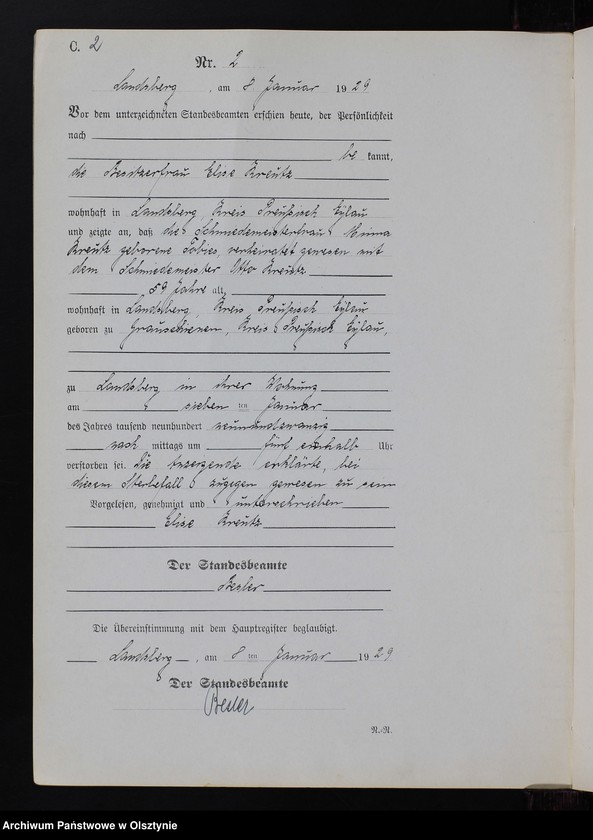 C. 2
Nr. 2
Landsberg, am 8 Januar 1929
Vor dem unterzeichneten Standesbeamten erschien heute, der Persönlichkeit
nach
be kannt,
die Besitzerfrau Elise Kreutz
wohnhaft in Landsberg, Kreis Preußisch Eylau
und zeigte an, daß die Schmiedemeisterfrau Minna
Kreutz geborene Tobies, verheiratet gewesen mit
dem Schmiedemeister Otto Kreutz
59 Jahre alt,
wohnhaft in Landsberg, Kreis Preußisch Eylau
geboren zu Grauschienen, Kreis Preußisch Eylau,
zu Landsberg in ihrer Wohnung
am sieben ten Januar
des Jahres tausend neunhundert neunundzwanzig
nach mittags um fünf einhalb Uhr
verstorben sei. Die Anzeigende erklärte, bei
diesem Sterbefall zugegen gewesen zu sein
Vorgelesen, genehmigt und unterschrieben
Elise Kreutz
Der Standesbeamte
Besler
Die Übereinstimmung mit dem Hauptregister beglaubigt.
Landsberg, am 8 ten Januar 1929
Der Standesbeamte
Besler
N.-R.
Archiwum Państwowe w Olsztynie